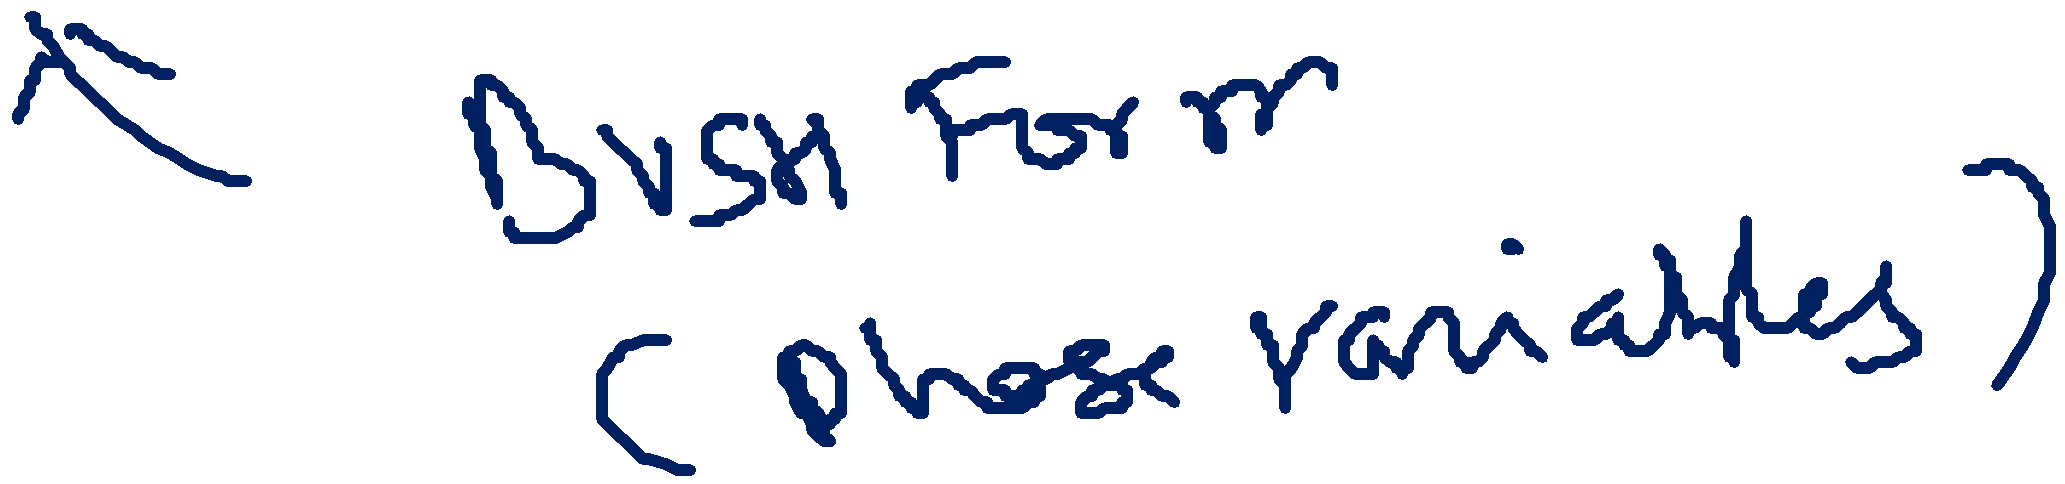 Bush Form
(phase variables)